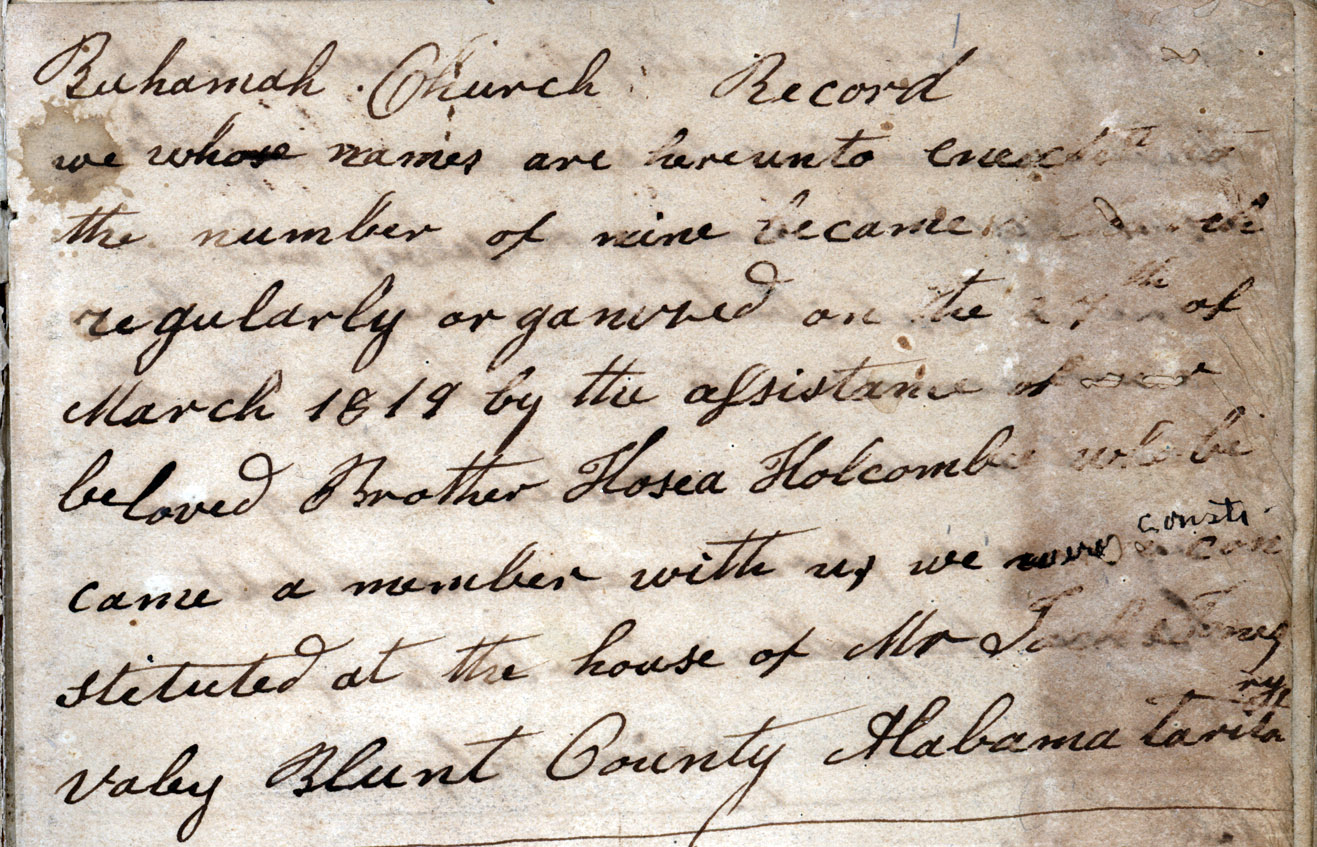 Buhamah Church Record
we whose names are hereunto
the number of nine became church
regularly organised on the 27th of
March 1819 by the assistance of our
beloved Brother Hosea Holcombe who be
came a member with us we were consti con
stituted at the house of Mr
valey Blunt County Alabama tarita ry